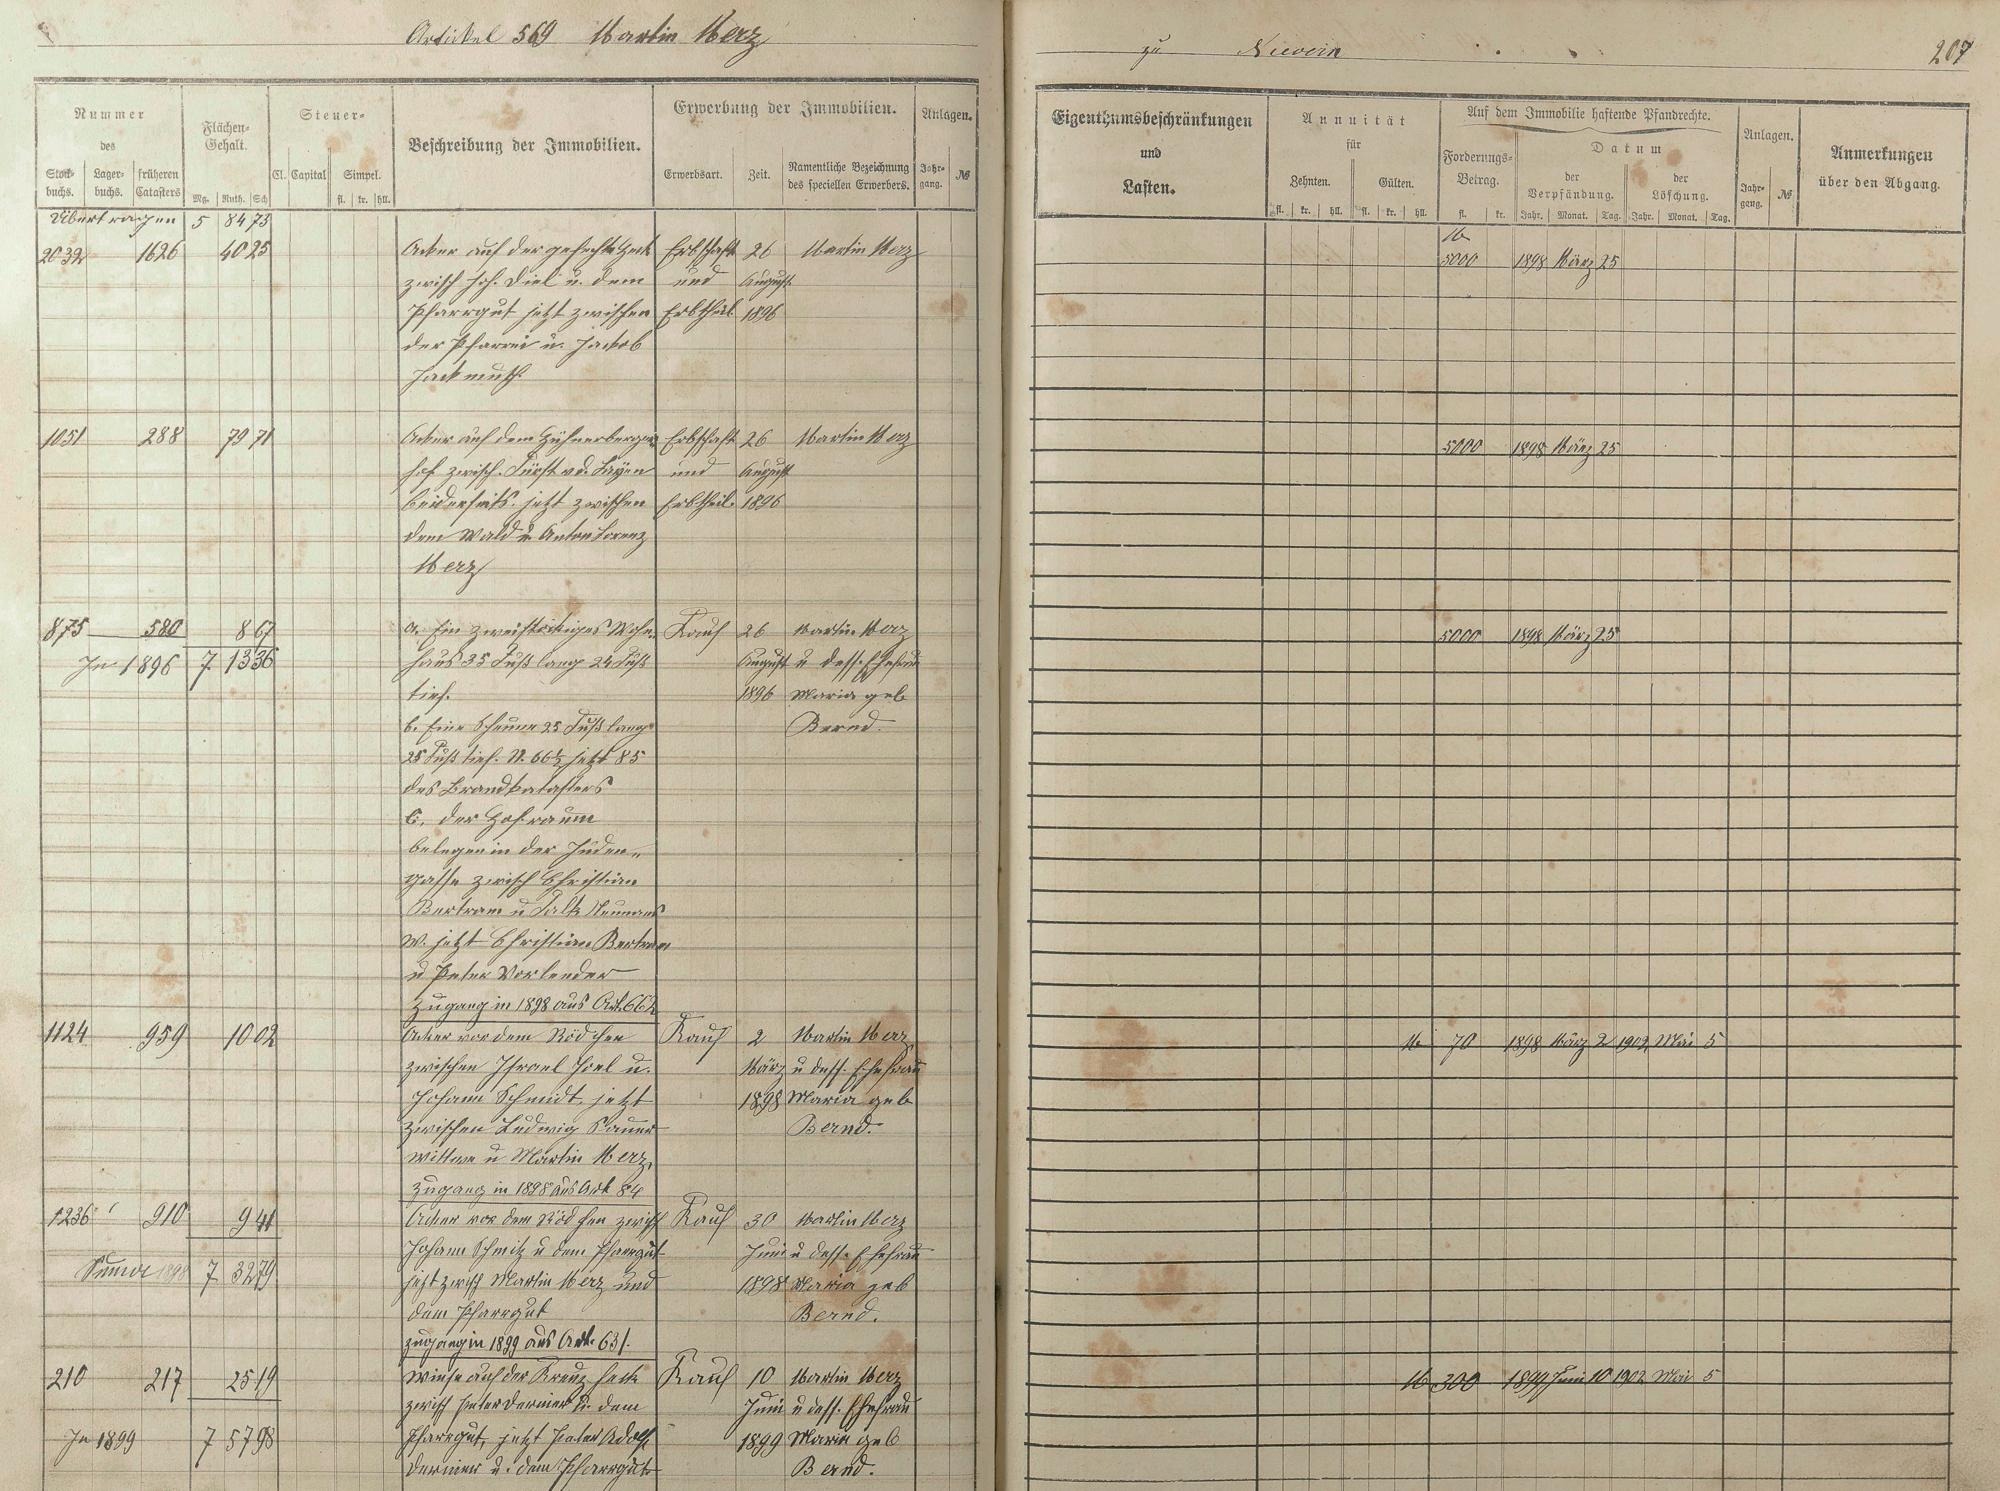 Artikel 569 Martin Merz
zu Nievern 207
Nummer
des
Stock-buchs. Lager-buchs. früheren Catasters
Flächen-Gehalt.
Mg. Ruth. Sch
Steuer-
Cl. Capital Simpel.
fl. kr. hll.
Beschreibung der Immobilien.
Erwerbung der Immobilien.
Erwerbsart. Zeit. Namentliche Bezeichnung des speciellen Erwerbers.
Anlagen.
Jahr-gang. №
Eigenthumsbeschränkungen
und
Lasten.
Annuität
für
Zehnten. Gülten.
fl. kr. hll. fl. kr. hll.
Auf dem Immobilie haftende Pfandrechte.
Forderungs-Betrag.
fl. kr.
Datum
der Verpfändung. der Löschung.
Jahr. Monat. Tag. Jahr. Monat. Tag.
Anlagen.
Jahr-gang. №
Anmerkungen
über den Abgang.
Übertragen 5 84 73
2032 1626 40 25 Acker auf der Erbschaft 26 Martin Merz M 5000 1898 März 25
zwisch Joh. Diel u. dem und August
Pfarrgut jetzt zwischen Erbtheil 1896
der Pfarrei u. Jackob
Hackmuth
1051 288 79 71 Acker auf dem Hühnerberger Erbschaft 26 Martin Merz 5000 1898 März 25
hof zwisch. Fürst v. d. Leyen und August
beiderseits. jetzt zwischen Erbtheil. 1896
dem Wald u Anton Lorenz
Merz
875 580 8 67 a. Ein zweistöckiges Wohn Kauf 26 Martin Merz 5000 1898 März 25
In 1896 7 13 36 haus 35 Fuß lang 24 Fuß August u dess. Ehefrau
tief. 1896 Maria geb
b. Eine Scheune 25 Fuß lang Bernd.
25 Fuß tief. N. 66½ jetzt 85
des Brandkatasters
C. der Hofraum
belegen in der Juden-
gasse zwisch Christian
Bertram u Falk
W. jetzt Christian Bertram
u Peter Vorlender
Zugang in 1898 aus Art. 662
1124 959 10 02 Acker vor dem Rödchen Kauf 2 Martin Merz M 70 1898 März 2 1902 Mai 5
zwischen Israel Joel u. März u dess. Ehefrau
Johann Schmidt, jetzt 1898 Maria geb
zwischen Ludwig Sauer Bernd.
Wittwe u Martin Merz,
Zugang in 1898 aus Art 84
1236 910 9 41 Acker vor dem Rödchen zwisch Kauf 30 Martin Merz
Johann Schmitz u dem Pfarrgut Juni u dess. Ehefrau
Summe 1898 7 32 79 jetzt zwisch Martin Merz und 1898 Maria geb
dem Pfarrgut Bernd.
Zugang in 1899 aus Art. 631.
210 217 25 19 Wiese auf der Kreuzheck Kauf 10 Martin Merz M 300 1899 Juni 10 1902 Mai 5
zwisch Peter u. dem Juni u dess. Ehefrau
In 1899 7 57 98 Pfarrgut, jetzt Peter Adolf 1899 Maria geb
u. dem Pfarrgut Bernd.